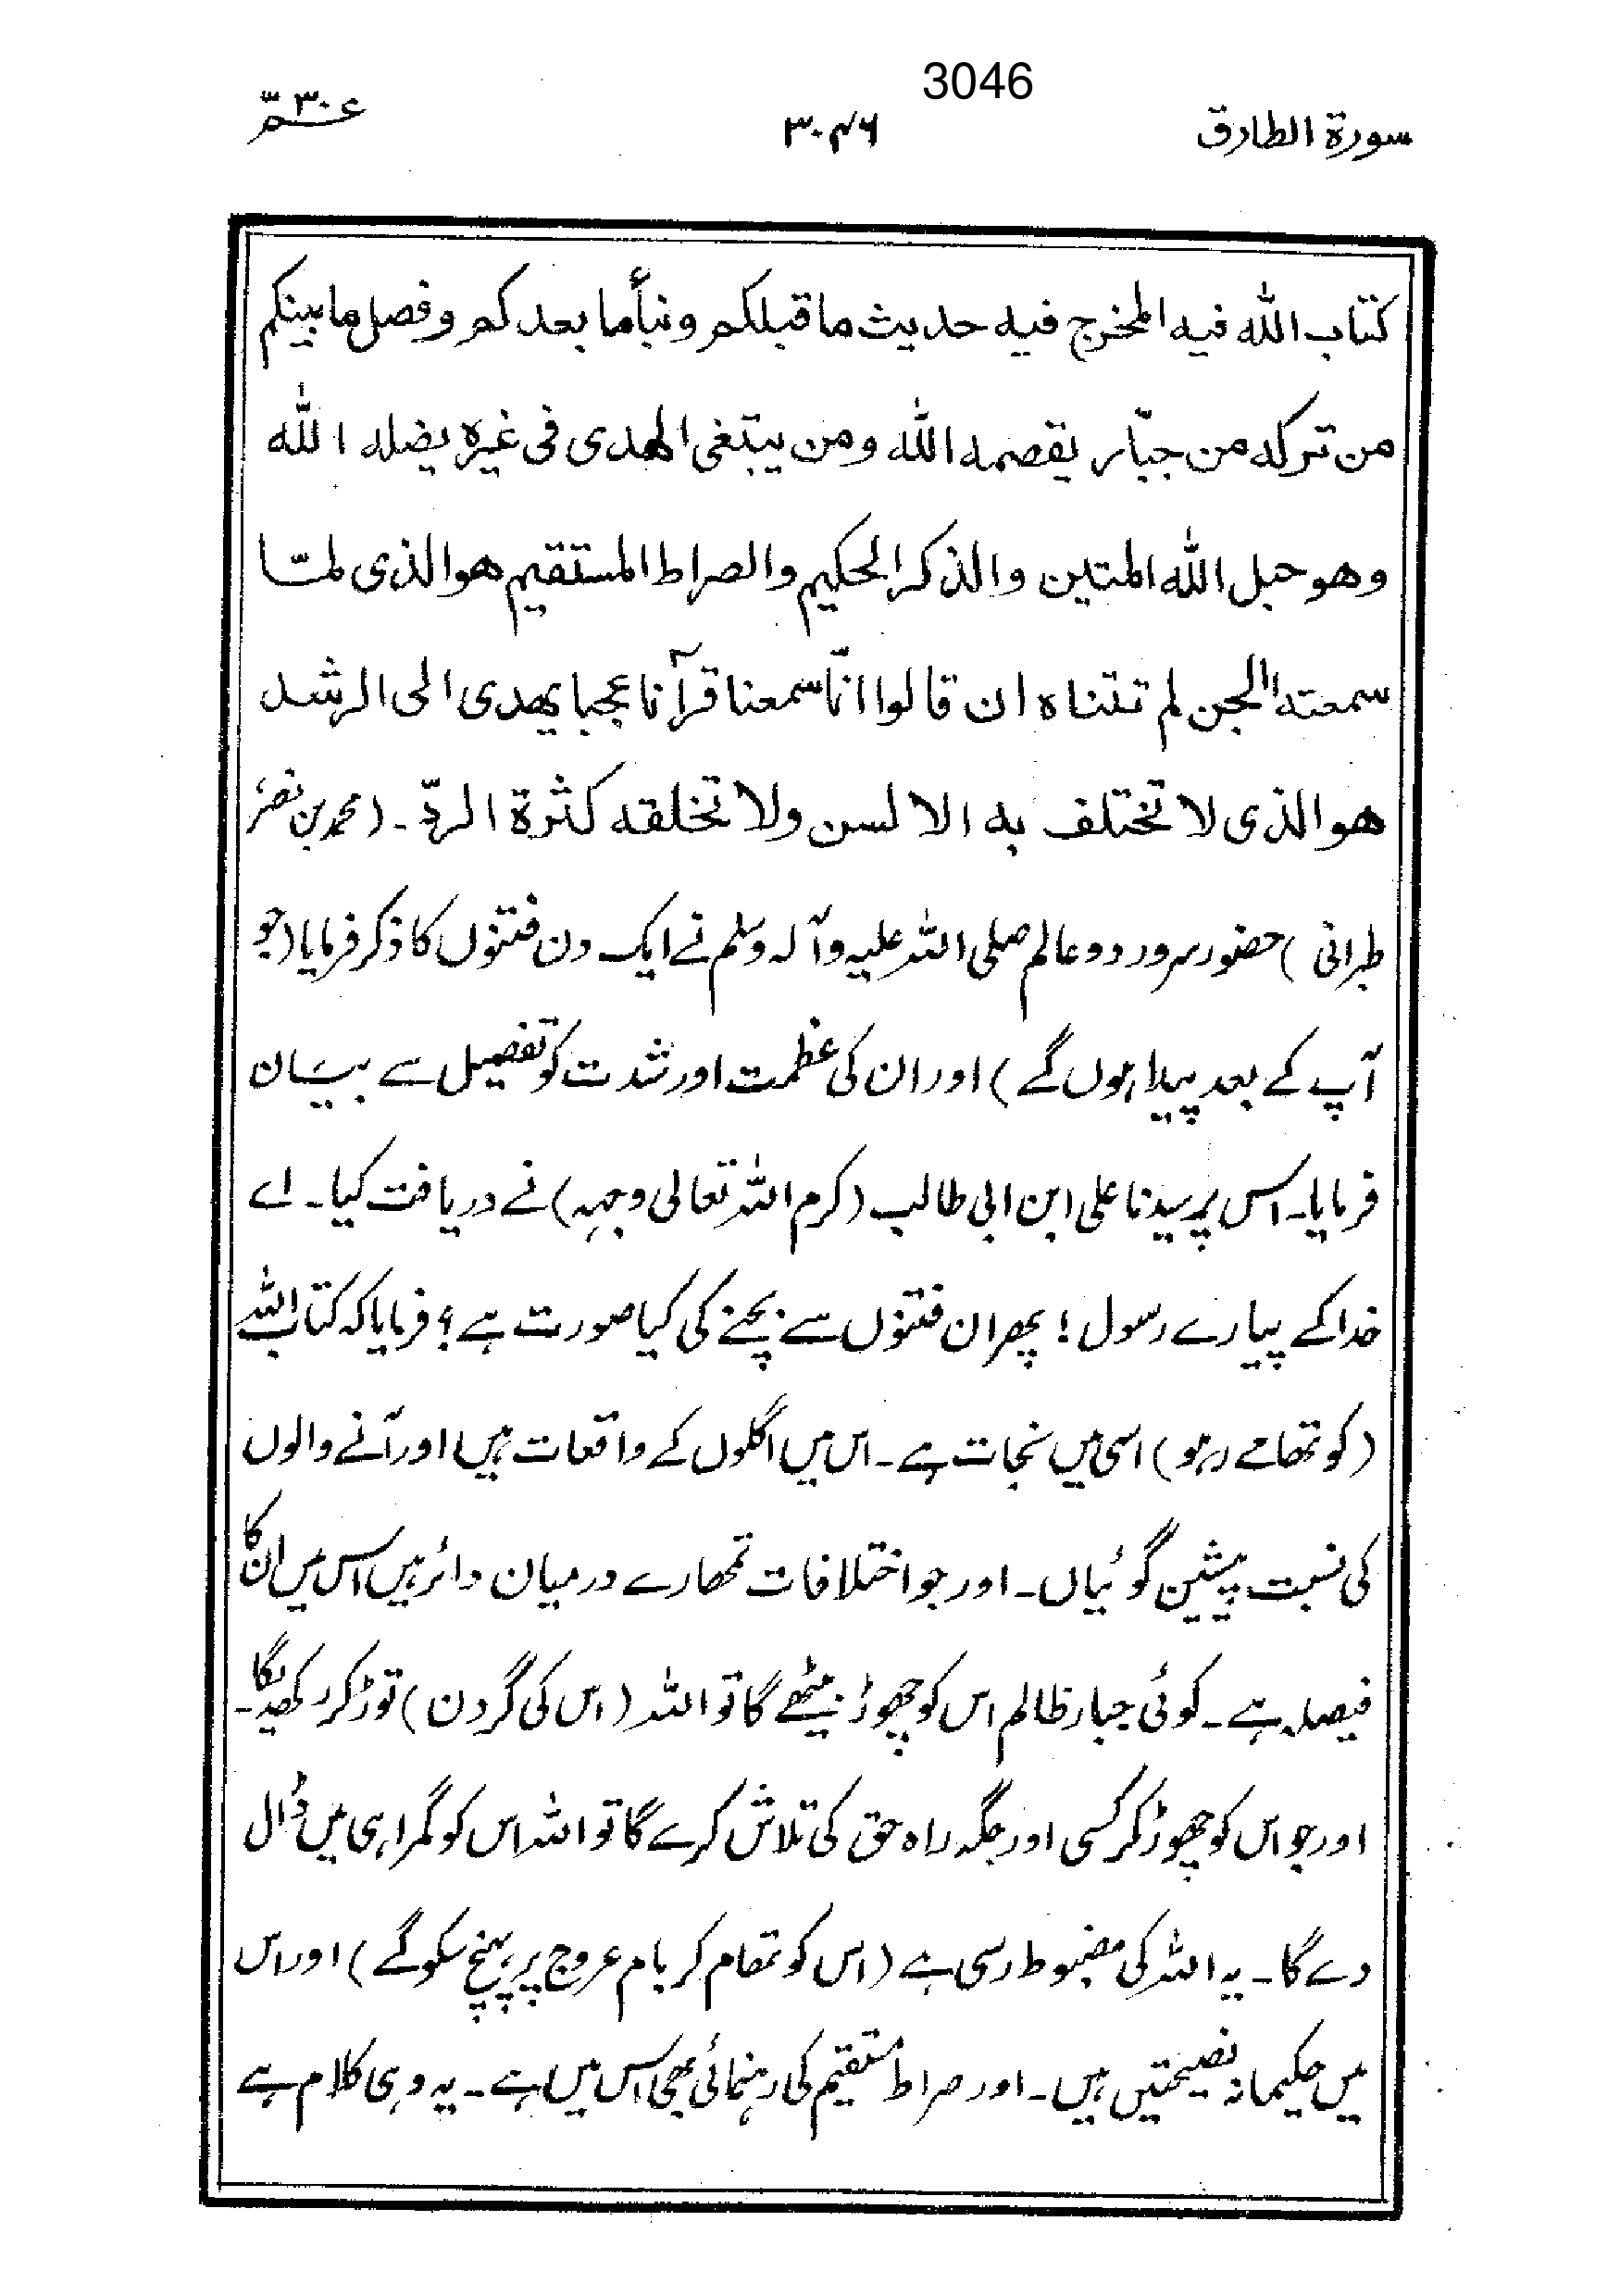 3046
سورۃ الطارق ۳۰۴۶ عمّ ۳۰
کتاب الله فیه المخرج فیه حدیث ما قبلکم ونبأ ما بعد کم وفصل ما بینکم
من ترکه من جبّار یقصمه الله ومن یبتغی الهدی فی غیرہ یضله الله
وهو حبل الله المتین والذکر الحکیم والصراط المستقیم هو الذی لمّا
سمعته الجن لم تتناه ان قالوا انّا سمعنا قرآنا عجبا یهدی الی الرشد
هو الذی لا تختلف به الا لسن ولا تخلقه کثرة الردّ۔ (محمد بن نصرؒ
طبرانی) حضور سرور دو عالم صلی اللہ علیہ وآلہ وسلم نے ایک دن فتنوں کا ذکر فرمایا (جو
آپ کے بعد پیدا ہوں گے) اور ان کی عظمت اور شدت کو تفصیل سے بیان
فرمایا۔ اس پر سیدنا علی ابن ابی طالب (کرم اللہ تعالی وجہہ) نے دریافت کیا۔ اے
خدا کے پیارے رسول! پھر ان فتنوں سے بچنے کی کیا صورت ہے؟ فرمایا کہ کتاب اللہ
(کو تھامے رہو) اسی میں نجات ہے۔ اس میں اگلوں کے واقعات ہیں اور آنے والوں
کی نسبت پیشین گوئیاں۔ اور جو اختلافات تمھارے درمیان دائر ہیں اس میں ان کا
فیصلہ ہے۔ کوئی جبار ظالم اس کو چھوڑ بیٹھے گا تو اللہ (اس کی گردن) توڑ کر رکھدیگا۔
اور جو اس کو چھوڑ کر کسی اور جگہ راہ حق کی تلاش کرے گا تو اللہ اس کو گمراہی میں ڈال
دے گا۔ یہ اللہ کی مضبوط رسی ہے (اس کو تھام کر بام عروج پر پہنچ سکو گے) اور اس
میں حکیمانہ نصیحتیں ہیں۔ اور صراط مستقیم کی رہنمائی بھی اس میں ہے۔ یہ وہی کلام ہے